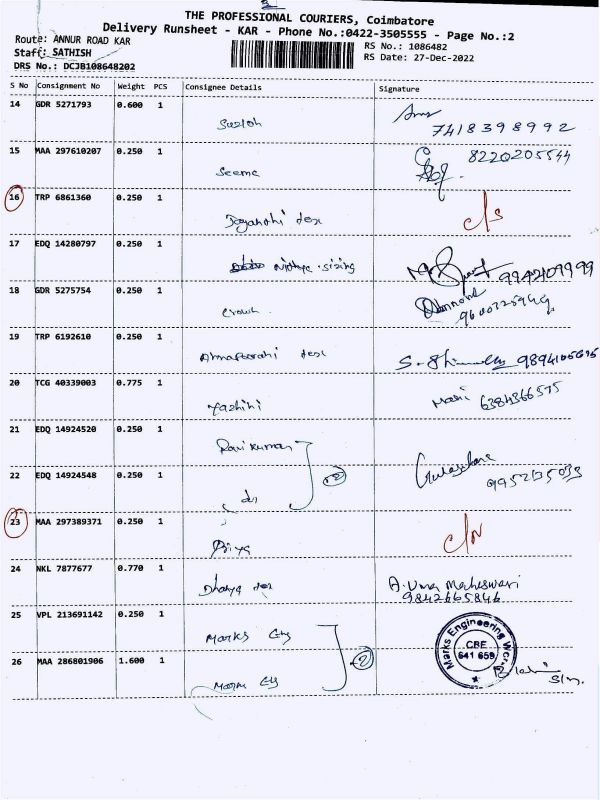 THE PROFESSIONAL COURIERS, Coimbatore
Delivery Runsheet - KAR - Phone No.:0422-3505555 - Page No.:2
Route: ANNUR ROAD KAR
RS No.: 1086482
Staff: SATHISH
RS Date: 27-Dec-2022
DRS No.: DCJB108648202
S No Consignment No Weight PCS Consignee Details Signature
14 GDR 5271793 0.600 1
7418398992
15 MAA 297610207 0.250 1 8220205544
Seema
16 TRP 6861360 0.250 1 c/s
17 EDQ 14280797 0.250 1
sizing 9942109999
18 GDR 5275754 0.250 1
Crown
19 TRP 6192610 0.250 1
tex
20 TCG 40339003 0.775 1
Yazhini Mani 6384366575
21 EDQ 14924520 0.250 1
Ravikumar
22 EDQ 14924548 0.250 1 2
do 9952135033
23 MAA 297389371 0.250 1
Priya c/N
24 NKL 7877677 0.770 1
tex A. Uma Maheswari
9842665846
25 VPL 213691142 0.250 1
Marks Eng
26 MAA 286801906 1.600 1 2
Marks Engineering
CBE
641 659